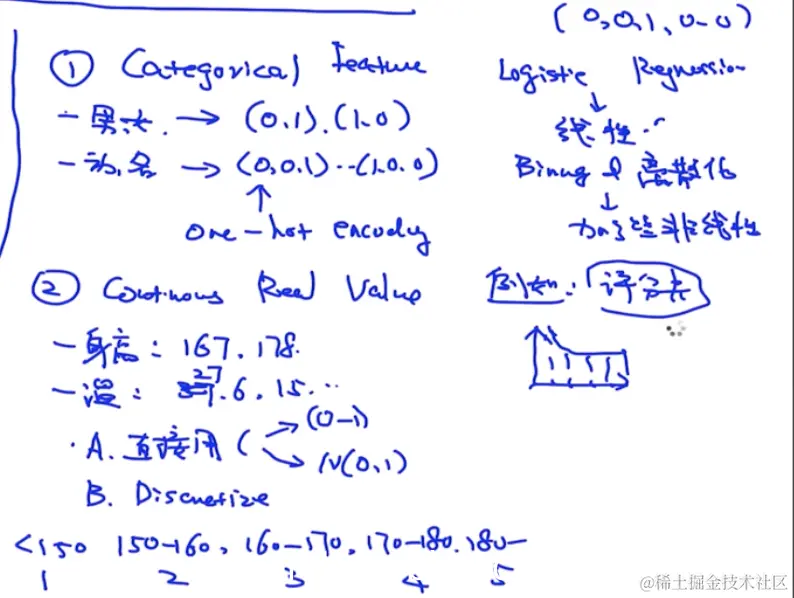 ① Categorical Feature
- 男女. → (0,1).(1.0)
→ (0,0.1)...(1.0.0)
↑
one-hot encoding
② Continous Real Value
- 身高: 167.178.
- 温: 27.6.15...
· A. 直接用 ( → (0-1)
→ N(0,1)
B. Discretize
<150 150-160, 160-170, 170-180. 180-
1 2 3 4 5
(0,0,1,0-0)
Logistic Regression
↓
线性..
离散化
↓
加了 非线性
例如: 评分卡
@稀土掘金技术社区